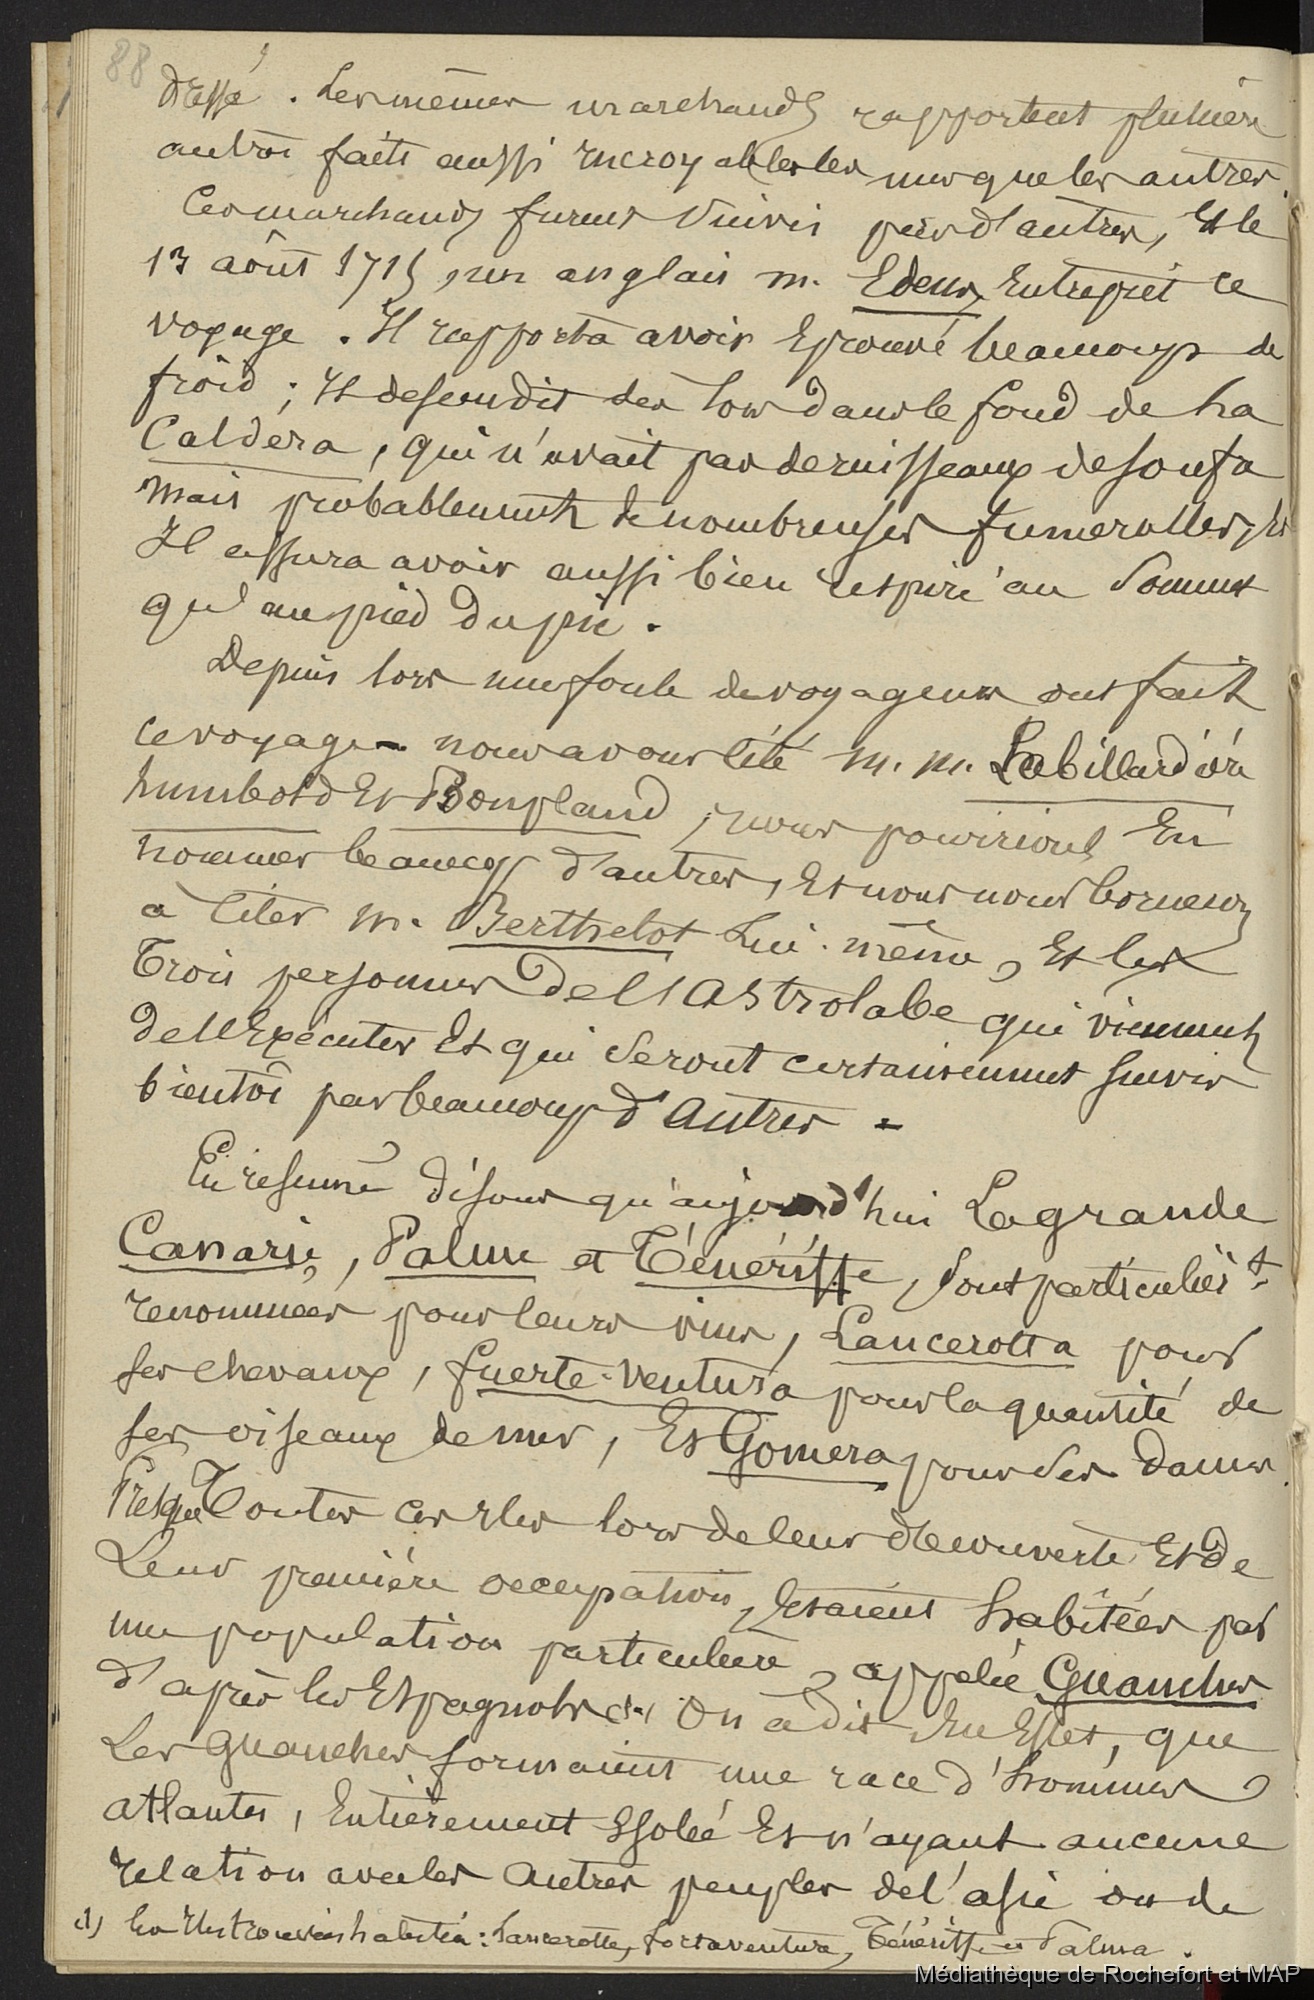 88
dressé. Les mêmes marchands rapportent plusieurs
autres faits aussi incroyables les uns que les autres.
Ces marchands furent suivis par d'autres, Et le
13 août 1715 un anglais m. Edens, Entreprit ce
voyage. Il rapporta avoir Eprouvé beaucoup de
froid ; Il descendit dès lors dans le fond de la
Caldéra, qui n'avait pas de ruisseaux de soufre
mais probablement de nombreuses fumerolles, Et
Il assura avoir aussi bien respiré au Sommet
qu'au pied du pic.
Depuis lors une foule de voyageurs ont fait
ce voyage - nous avons cité m. m. Labillardière
humbold Et Bonpland, nous pourrions En
nommer beaucoup d'autres, Et nous nous bornerons
a citer m. Berthelot Lui-même, Et les
Trois personnes de l'Astrolabe qui viennent
de l'Exécuter Et qui Seront certainement suivis
bientôt par beaucoup d'autres -
En résumé disons qu'aujourd'hui La grande
Canarie, Palme et Ténériffe, Sont particulièrt
renommées pour leurs vins, Lancerotta pour
ses chevaux, fuerte-ventura pour la quantité de
ses oiseaux de mer, Et Gomera pour ses daims.
Presque Toutes ces Iles lors de leur découverte Et de
Leur première occupation, Etaient habitées par
une population particulière, appelée Guanches
d'après les Espagnols (1) On a dit En Effet, que
Les guanches formaient une race d'hommes
atlantes, Entièrement Isolée Et n'ayant aucune
relation avec les autres peuples de l'asie ou de
(1) Les Iles trouvées habitées : Lancerotte, fortaventura, Ténériffe et Palma.
Médiathèque de Rochefort et MAP